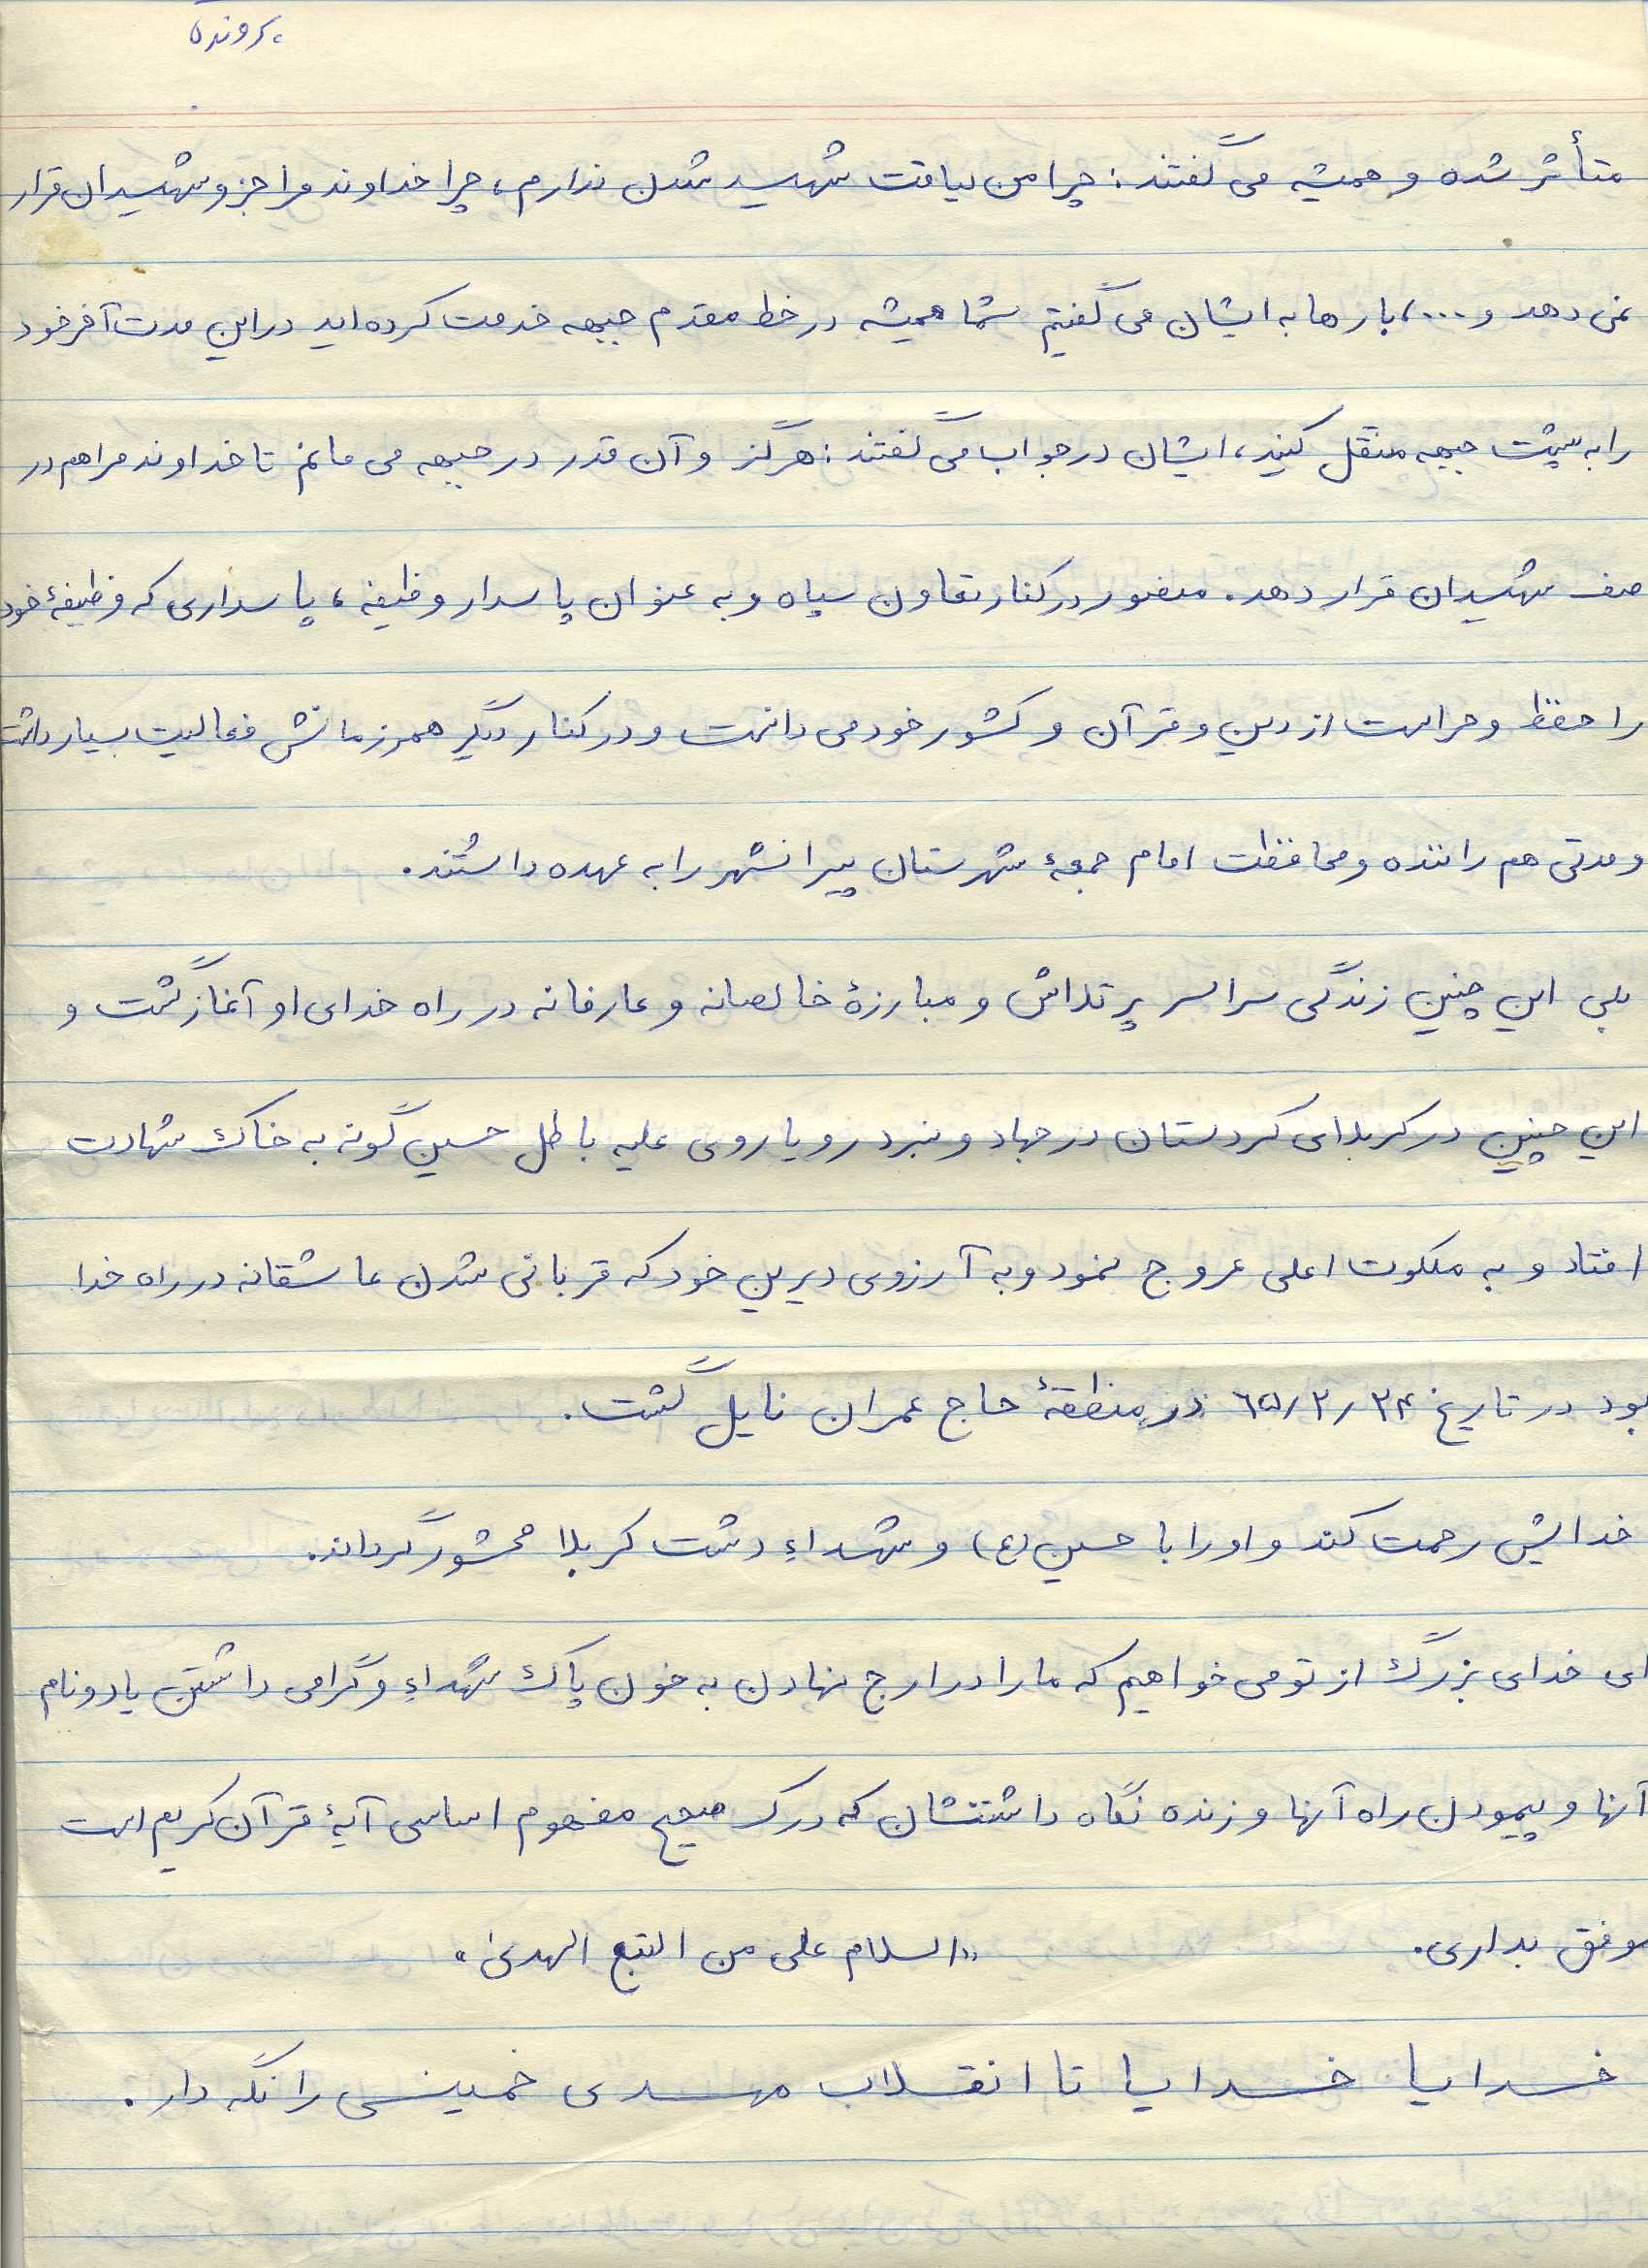 پرونده
متأثر شده و همیشه می گفتند: چرا من لیاقت شهید شدن ندارم، چرا خداوند مرا جزو شهیدان قرار
نمی دهد و ....، بارها به ایشان می گفتیم شما همیشه در خط مقدم جبهه خدمت کرده اید در این مدت آخر خود
را به پشت جبهه منتقل کنید، ایشان در جواب می گفتند: هرگز و آن قدر در جبهه می مانم تا خداوند مرا هم در
صف شهیدان قرار دهد. منصور در کنار تعاون سپاه و به عنوان پاسدار وظیفه، پاسداری که وظیفهٔ خود
را حفظ و حراست از دین و قرآن و کشور خود می دانست و در کنار دیگر همرزمانش فعالیت بسیار داشت
و مدتی هم راننده و محافظت امام جمعهٔ شهرستان پیرانشهر را به عهده داشتند.
بلی این چنین زندگی سراسر پر تلاش و مبارزهٔ خالصانه و عارفانه در راه خدای او آغاز گشت و
این چنین در کربلای کردستان در جهاد و نبرد رویاروی علیه باطل حسین گونه به خاک شهادت
افتاد و به ملکوت اعلی عروج نمود و به آرزوی دیرین خود که قربانی شدن عاشقانه در راه خدا
بود در تاریخ ۶۵/۲/۲۴ در منطقهٔ حاج عمران نایل گشت.
خدایش رحمت کند و او را با حسین (ع) و شهداءِ دشت کربلا محشور گرداند.
ای خدای بزرگ از تو می خواهیم که ما را در ارج نهادن به خون پاک شهداءِ و گرامی داشتن یاد و نام
آنها و پیمودن راه آنها و زنده نگاه داشتنشان که درک صحیح مفهوم اساسی آیهٔ قرآن کریم است
موفق بداری. «السلام علی من التبع الهدیٰ»
خدایا خدایا تا انقلاب مهدی خمینی را نگه دار.